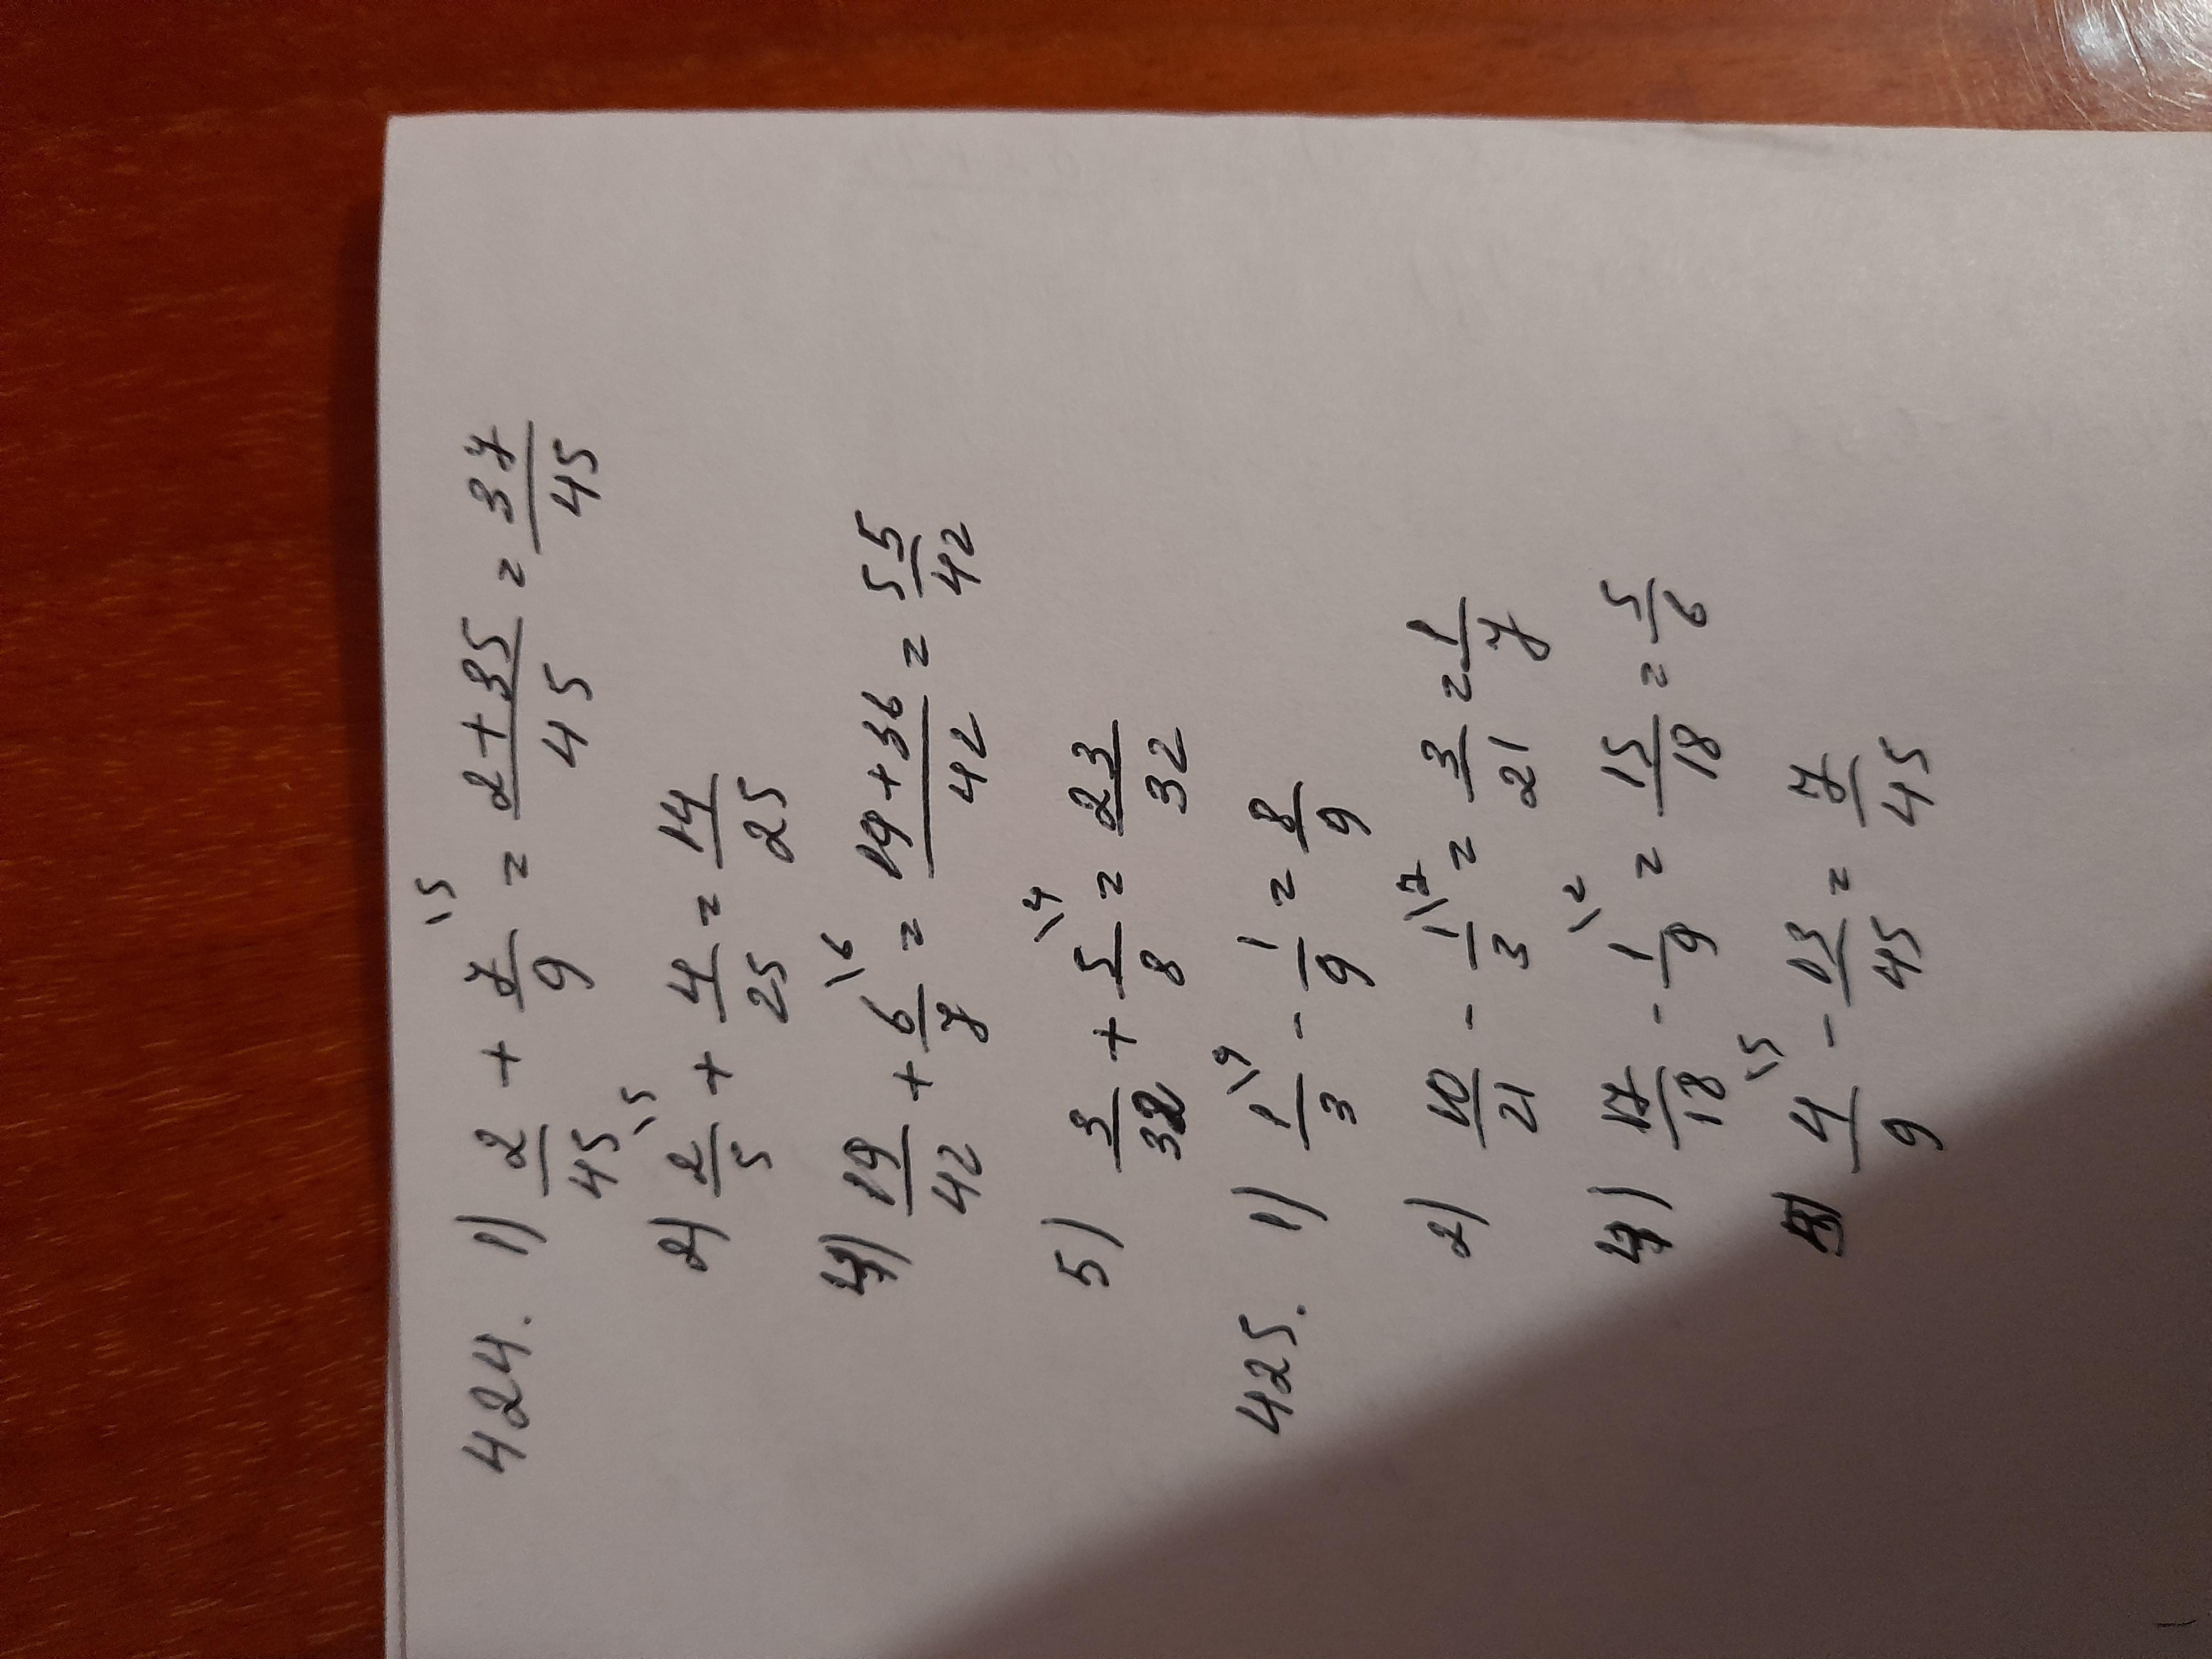 424. 1) 2/45 + 7/9 \5 = 2+35/45 = 37/45
2) 2/5 \5 + 4/25 = 14/25
4) 19/42 + 6/7 \6 = 19+36/42 = 55/42
5) 3/32 + 5/8 \4 = 23/32
425. 1) 1/3 \9 - 1/9 = 8/9
2) 10/21 - 1/3 \7 = 3/21 = 1/7
4) 17/18 - 1/9 \2 = 15/18 = 5/6
4/9 \5 - 13/45 = 7/45